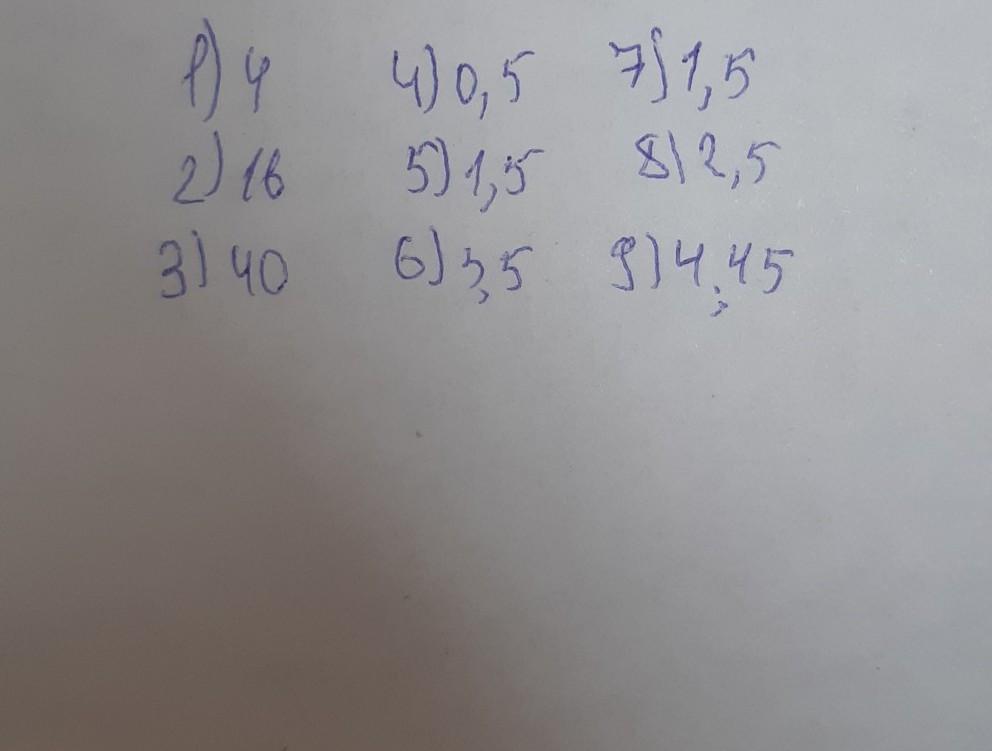 1) 4 4) 0,5 7) 1,5
2) 16 5) 1,5 8) 2,5
3) 40 6) 3,5 9) 4,45